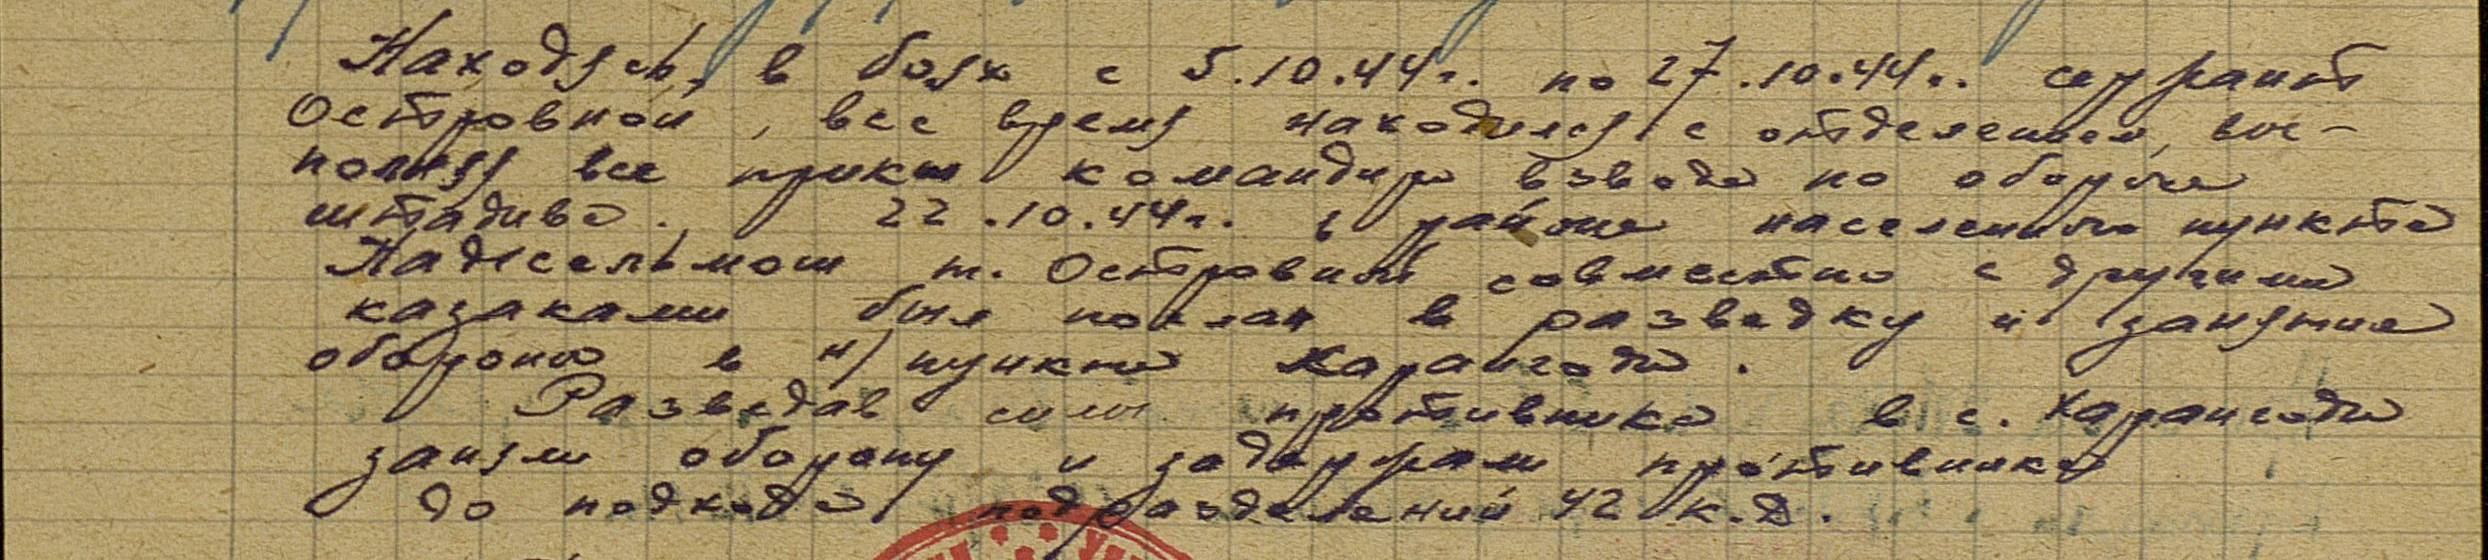 Находясь, в боях с 5.10.44г. по 27.10.44г. сержант
Островной, все время находился с отделением, вы-
полняя все приказы командира взвода по обороне
штадива. 22.10.44г. в районе населенного пункта
т. Островной совместно с другими
казаками был послан в разведку и занятия
обороны в н/пункте
Разведав силы противника в с.
заняли оборону и задержали противника
до подхода подразделений 42 к.д.